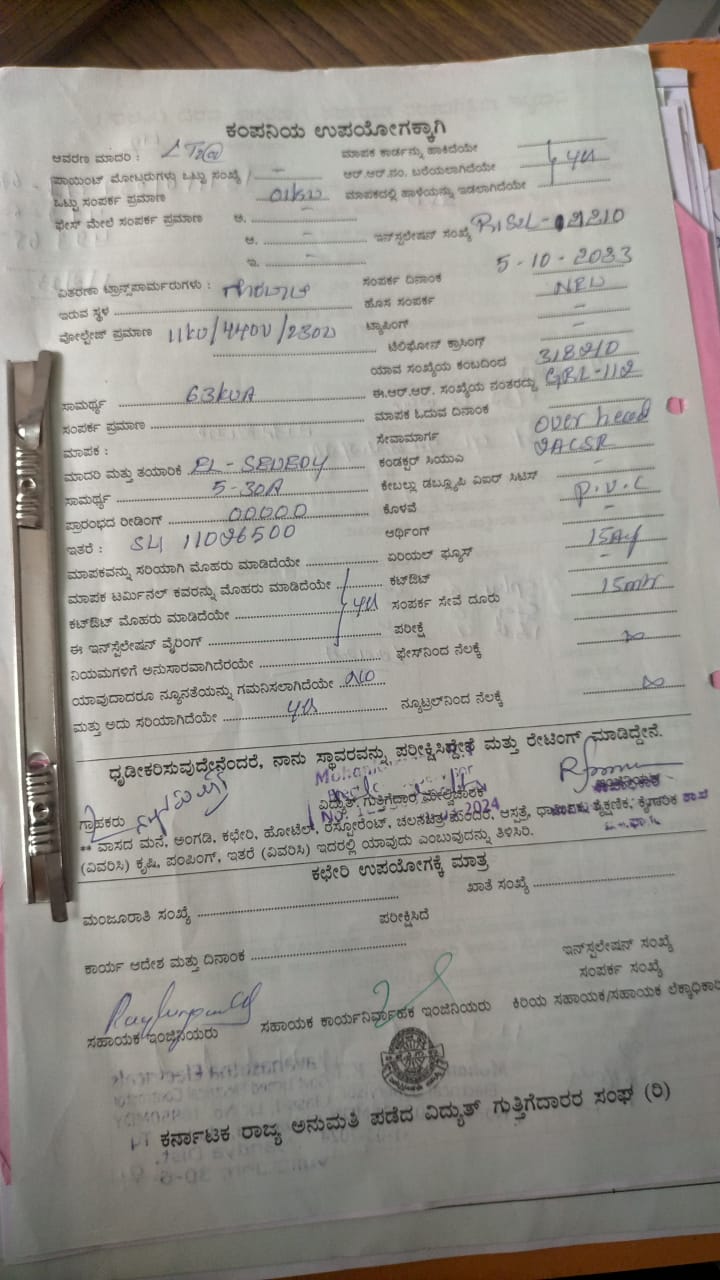 ಕಂಪನಿಯ ಉಪಯೋಗಕ್ಕಾಗಿ
ಆವರಣ ಮಾದರಿ : ಮಾಪಕ ಕಾರ್ಡನ್ನು ಹಾಕಿದೆಯೇ
ಪಾಯಿಂಟ್ ಮೋಟ್ರುಗಳು ಒಟ್ಟು ಸಂಖ್ಯೆ / - ಆರ್.ಆರ್.ನಂ. ಬರೆಯಲಾಗಿದೆಯೇ yes
ಒಟ್ಟು ಸಂಪರ್ಕ ಪ್ರಮಾಣ 01kw ಮಾಪಕದಲ್ಲಿ ಹಾಳೆಯನ್ನು ಇಡಲಾಗಿದೆಯೇ
ಫೇಸ್ ಮೇಲೆ ಸಂಪರ್ಕ ಪ್ರಮಾಣ ಅ. -
ಆ. - ಇನ್‌ಸ್ಟಲೇಷನ್ ಸಂಖ್ಯೆ
ಇ. -
ವಿತರಣಾ ಟ್ರಾನ್ಸ್‌ಫಾರ್ಮರುಗಳು : ಸಂಪರ್ಕ ದಿನಾಂಕ 5-10-2023
ಇರುವ ಸ್ಥಳ ಹೊಸ ಸಂಪರ್ಕ NEW
ವೋಲ್ಟೇಜ್ ಪ್ರಮಾಣ 11kv/440v/230v ಟ್ಯಾಪಿಂಗ್ -
ಟೆಲಿಫೋನ್ ಕ್ರಾಸಿಂಗ್ -
ಯಾವ ಸಂಖ್ಯೆಯ ಕಂಬದಿಂದ
ಸಾಮರ್ಥ್ಯ 63kVA ಈ.ಆರ್.ಆರ್. ಸಂಖ್ಯೆಯ ನಂತರದ್ದು
ಸಂಪರ್ಕ ಪ್ರಮಾಣ ಮಾಪಕ ಓದುವ ದಿನಾಂಕ
ಮಾಪಕ : ಸೇವಾಮಾರ್ಗ over head
ಮಾದರಿ ಮತ್ತು ತಯಾರಿಕೆ ಕಂಡಕ್ಟರ್ ಸಿಯುಎ
ಸಾಮರ್ಥ್ಯ 5-30A ಕೇಬಲ್ಲು ಡಬ್ಲ್ಯೂಪಿ ಎಐರ್ ಸಿಟಿಸ್ -
ಪ್ರಾರಂಭದ ರೀಡಿಂಗ್ 00000 ಕೊಳವೆ P.V.C
ಇತರೆ : ಆರ್ಥಿಂಗ್ -
ಮಾಪಕವನ್ನು ಸರಿಯಾಗಿ ಮೊಹರು ಮಾಡಿದೆಯೇ ಏರಿಯಲ್ ಫ್ಯೂಸ್
ಮಾಪಕ ಟರ್ಮಿನಲ್ ಕವರನ್ನು ಮೊಹರು ಮಾಡಿದೆಯೇ ಕಟ್‌ಔಟ್ -
ಕಟ್‌ಔಟ್ ಮೊಹರು ಮಾಡಿದೆಯೇ yes ಸಂಪರ್ಕ ಸೇವೆ ದೂರು 15mtr
ಈ ಇನ್‌ಸ್ಟೆಲೇಷನ್ ವೈರಿಂಗ್ ಪರೀಕ್ಷೆ
ನಿಯಮಗಳಿಗೆ ಅನುಸಾರವಾಗಿದೆರೆಯೇ ಫೇಸ್‌ನಿಂದ ನೆಲಕ್ಕೆ ∞
ಯಾವುದಾದರೂ ನ್ಯೂನತೆಯನ್ನು ಗಮನಿಸಲಾಗಿದೆಯೇ NO
ಮತ್ತು ಅದು ಸರಿಯಾಗಿದೆಯೇ yes ನ್ಯೂಟ್ರಲ್‌ನಿಂದ ನೆಲಕ್ಕೆ ∞
ಧೃಡೀಕರಿಸುವುದೇನೆಂದರೆ, ನಾನು ಸ್ಥಾವರವನ್ನು ಪರೀಕ್ಷಿಸಿದ್ದೇನೆ ಮತ್ತು ರೇಟಿಂಗ್ ಮಾಡಿದ್ದೇನೆ.
ಗ್ರಾಹಕರು ವಿದ್ಯುತ್ ಗುತ್ತಿಗೆದಾರ ಮೇಲ್ವಿಚಾರಕ
** ವಾಸದ ಮನೆ, ಅಂಗಡಿ, ಕಛೇರಿ, ಹೋಟೆಲ್, ರೆಸ್ಟೋರೆಂಟ್, ಚಲನಚಿತ್ರ ಮಂದಿರ, ಆಸ್ಪತ್ರೆ, ಶೈಕ್ಷಣಿಕ, ಕೈಗಾರಿಕೆ
(ವಿವರಿಸಿ) ಕೃಷಿ, ಪಂಪಿಂಗ್, ಇತರೆ (ವಿವರಿಸಿ) ಇದರಲ್ಲಿ ಯಾವುದು ಎಂಬುವುದನ್ನು ತಿಳಿಸಿರಿ.
ಕಛೇರಿ ಉಪಯೋಗಕ್ಕೆ ಮಾತ್ರ
ಮಂಜೂರಾತಿ ಸಂಖ್ಯೆ ಖಾತೆ ಸಂಖ್ಯೆ
ಪರೀಕ್ಷಿಸಿದೆ
ಕಾರ್ಯ ಆದೇಶ ಮತ್ತು ದಿನಾಂಕ ಇನ್‌ಸ್ಟಲೇಷನ್ ಸಂಖ್ಯೆ
ಸಂಪರ್ಕ ಸಂಖ್ಯೆ
ಸಹಾಯಕ ಇಂಜಿನಿಯರು ಸಹಾಯಕ ಕಾರ್ಯನಿರ್ವಾಹಕ ಇಂಜಿನಿಯರು ಕಿರಿಯ ಸಹಾಯಕ/ಸಹಾಯಕ ಲೆಕ್ಕಾಧಿಕಾರಿ
ಕರ್ನಾಟಕ ರಾಜ್ಯ ಅನುಮತಿ ಪಡೆದ ವಿದ್ಯುತ್ ಗುತ್ತಿಗೆದಾರರ ಸಂಘ (ರಿ)